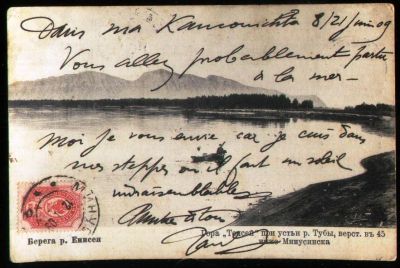 Dans ma 8/21 juin 09
Vous allez probablement partir
à la mer –
Moi je vous envie car je cuis dans
nos steppes où il fait un soleil
invraisemblable
Берега р. Енисея
Гора „Тепсей" при устьи р. Тубы, верст. въ 45
ниже Минусинска
МИНУС